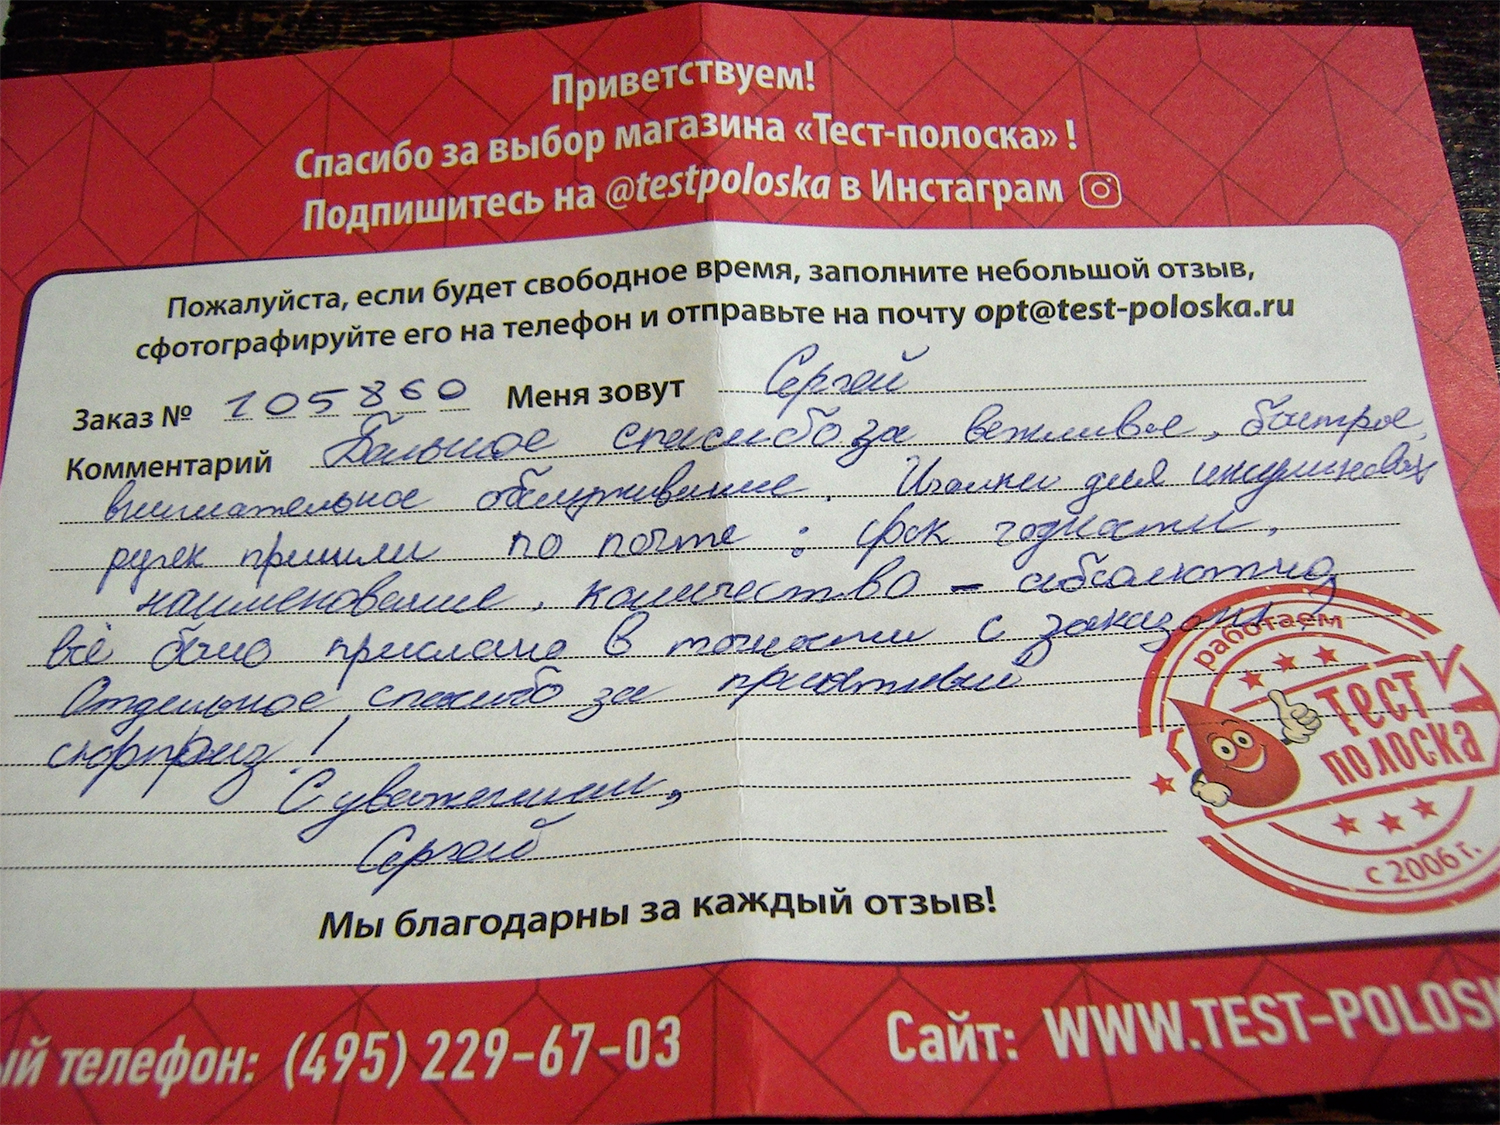 Приветствуем!
Спасибо за выбор магазина «Тест-полоска» !
Подпишитесь на @testpoloska в Инстаграм
Пожалуйста, если будет свободное время, заполните небольшой отзыв,
сфотографируйте его на телефон и отправьте на почту opt@test-poloska.ru
Заказ № 105860 Меня зовут Сергей
Комментарий Большое спасибо за вежливое, быстрое,
внимательное обслуживание. Иголки для инсулиновых
ручек пришли по почте : срок годности,
наименование, количество – абсолютно
всё было прислано в точности с заказом.
Отдельное спасибо за приятный
сюрприз !
С уважением,
Сергей
работаем
Тест
полоска
с 2006 г.
Мы благодарны за каждый отзыв!
ый телефон: (495) 229-67-03 Сайт: WWW.TEST-POLOSK